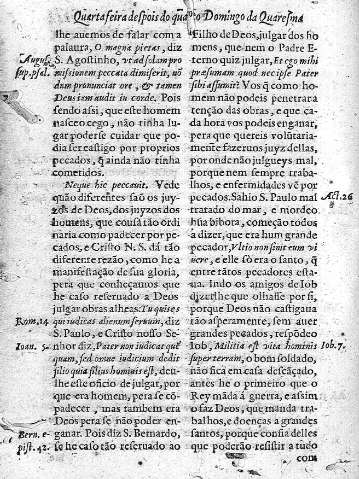 Quarta feira despois do quarto Domingo da Quaresma
lhe auemos de falar com a
palaura, O magna pietas, diz
S. Agostinho, vt ad solam pro
missionem peccata dimiserit, nõ
dum pronunciat ore, & tamen
Deus iam audit in corde. Pois
sendo assi, que este homem
nasceo cego, não tinha lu-
gar poderse cuidar que po-
dia ser castigo por proprios
peccados, q̃ ainda não tinha
cometidos.
Neque hic peccauit. Vede
quão diferentes saõ os juy-
zos de Deos, dos juyzos dos
homens, que cousa tão ordi
naria como padecer por pe-
cados, e Cristo N. S. dá tão
diferente rezão, como he a
manifestação de sua gloria,
pera que conheçamos que
he caso reseruado a Deos
julgar obras alheas. Tu quis es
qui iudicas alienum seruum, diz
S. Paulo, e Cristo nosso Se-
nhor diz, Pater non iudicat quẽ
quam, sed omne iudicium dedit
filio quia filius hominis est, deu-
lhe este oficio de julgar, por
que era homem, pera se cõ-
padecer, mas tambem era
Deos pera se não poder en-
ganar. Pois diz S. Bernardo,
se he caso tão reseruado ao
August.
sup. psal.
Rom. 14.
Ioan. 5.
Bern. e-
pist. 42.
Filho de Deos, julgar dos ho
mens, que nem o Padre E-
terno quiz julgar, Et ego mihi
præsumam quod nec ipse Pater
sibi assumit? Vos q̃ como ho-
mem não podeis penetrar a
tenção das obras, e que ca-
da hora vos podeis enganar,
pera que quereis voluntaria-
mente fazeruos juyz dellas,
por onde não julgueys mal,
porque nem sempre traba-
lhos, e enfermidades vẽ por
pecados. Sahio S. Paulo mal
tratado do mar, e mordeo
hũa bibora, começão todos
a dizer, que era hum grande
pecador, Vltio non sinit eum vi
uere, e elle só era o santo, q̃
entre tãtos pecadores esta-
ua. Indo os amigos de Iob
dizerlhe que olhasse por si,
porque Deos não castigaua
tão asperamente, sem auer
grandes pecados, respõdeo
Iob, Militia est vita hominis
super terram, o bom soldado,
não fica em casa descãçado,
antes he o primeiro que o
Rey mãda á guerra, e assim
o faz Deos, que manda tra-
balhos, e doenças a grandes
santos, porque confia delles
que poderão resistir a tudo
com
Act. 26
Iob. 7.